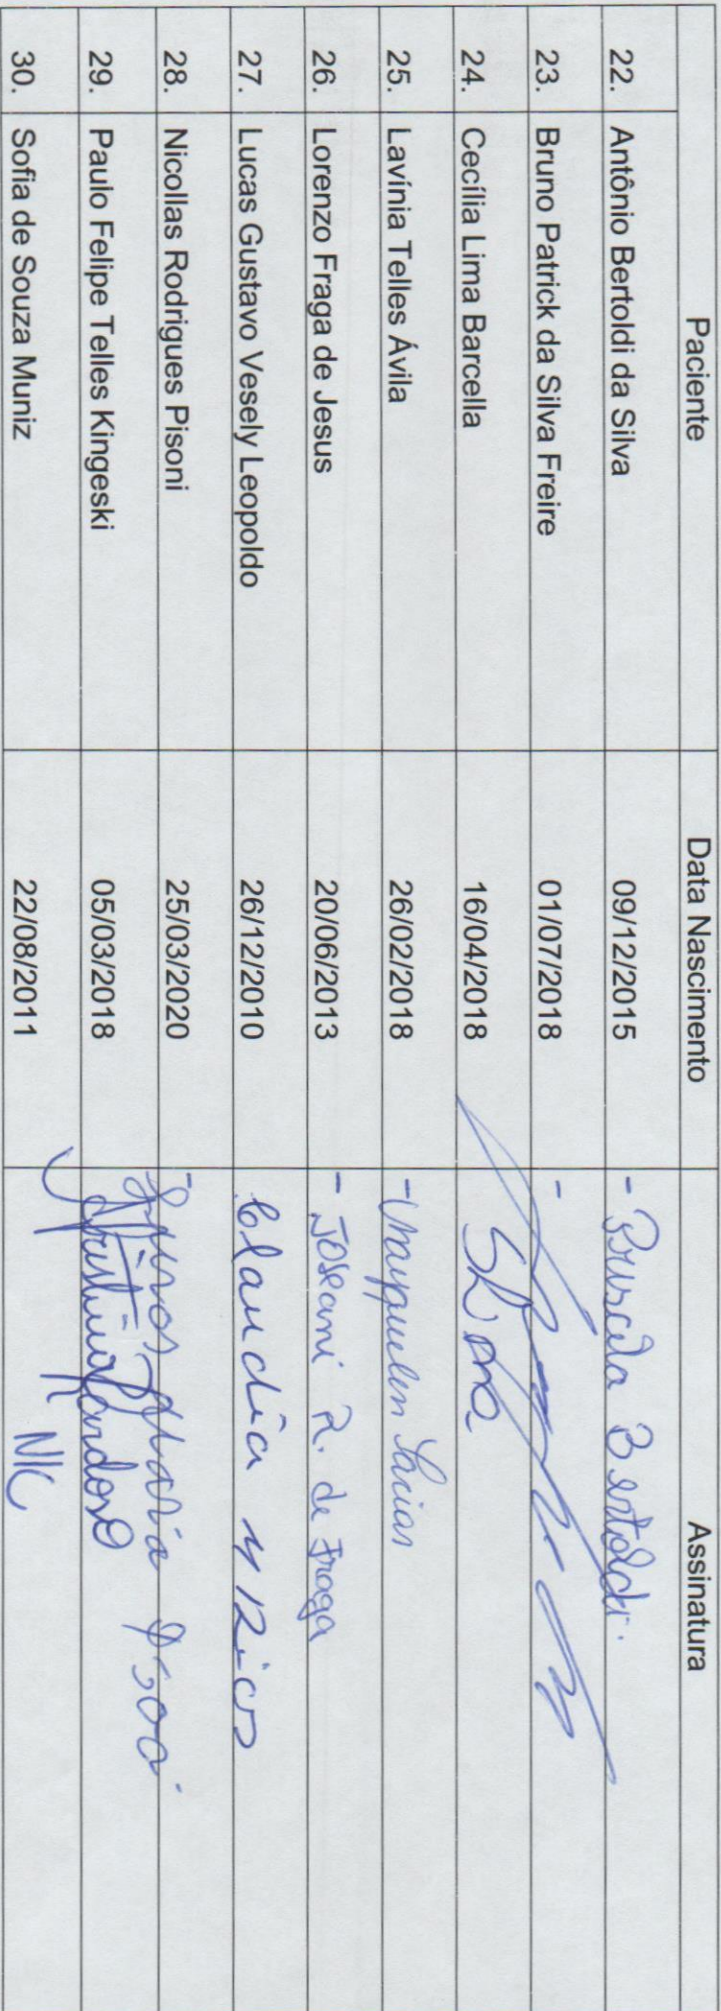 Paciente Data Nascimento Assinatura
22. Antônio Bertoldi da Silva 09/12/2015 - Priscila Bertoldi.
23. Bruno Patrick da Silva Freire 01/07/2018 -
24. Cecília Lima Barcella 16/04/2018
25. Lavínia Telles Ávila 26/02/2018 -
26. Lorenzo Fraga de Jesus 20/06/2013 - Joseani R. de Fraga
27. Lucas Gustavo Vesely Leopoldo 26/12/2010 Claudia
28. Nicollas Rodrigues Pisoni 25/03/2020 -
29. Paulo Felipe Telles Kingeski 05/03/2018 Cardoso
30. Sofia de Souza Muniz 22/08/2011